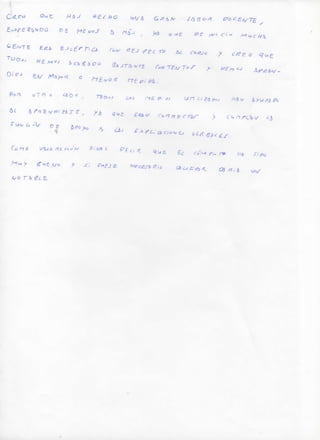 CREO QUE HAS HECHO UNA GRAN LABOR DOCENTE,
EMPEZANDO DE MENOS A MÁS, YA QUE DE INICIO MUCHA
GENTE ERA ESCÉPTICA CON RESPECTO AL CURSO Y CREO QUE
TODOS HEMOS ACABADO BASTANTE CONTENTOS Y HEMOS APREN-
DIDO EN MAYOR O MENOR MEDIDA.
POR OTRO LADO, TODOS LOS MEDIOS UTILIZADOS HAN AYUDADO
AL APRENDIZAJE, YA QUE ERAN CORRECTOS Y CUMPLÍAN LA
FUNCIÓN DE APOYO A LAS EXPLICACIONES VERBALES.
COMO VALORACIÓN DECIR QUE EL CÓMPUTO HA SIDO
MUY BUENO Y SI FUESE NECESARIO CALIFICAR SERÍA UN
NOTABLE